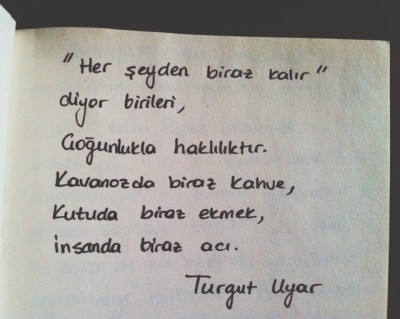 "Her şeyden biraz kalır"
diyor birileri,
Çoğunlukla haklılıktır.
Kavanozda biraz kahve,
Kutuda biraz ekmek,
insanda biraz acı.
Turgut Uyar